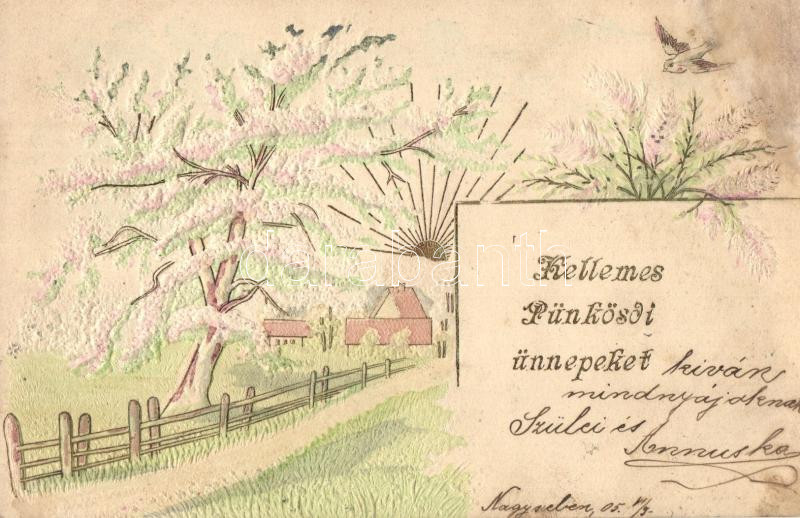 Kellemes
Pünkösdi
ünnepeket kiván
mindnyájoknak
Szülei és
Annuska
Nagyseben, 05.
darabanth